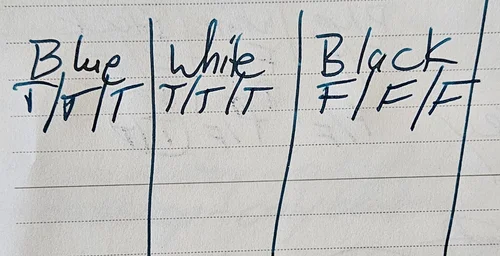 Blue White Black
T/T/T T/T/T F/F/F